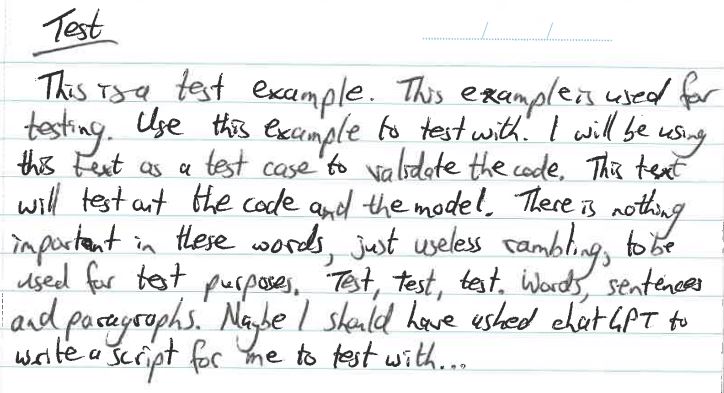 Test
This is a test example. This example is used for
testing. Use this example to test with. I will be using
this text as a test case to validate the code. This text
will test out the code and the model. There is nothing
important in these words, just useless rambling, to be
used for test purposes. Test, test, test. Words, sentences
and paragraphs. Maybe I should have asked chatGPT to
write a script for me to test with...